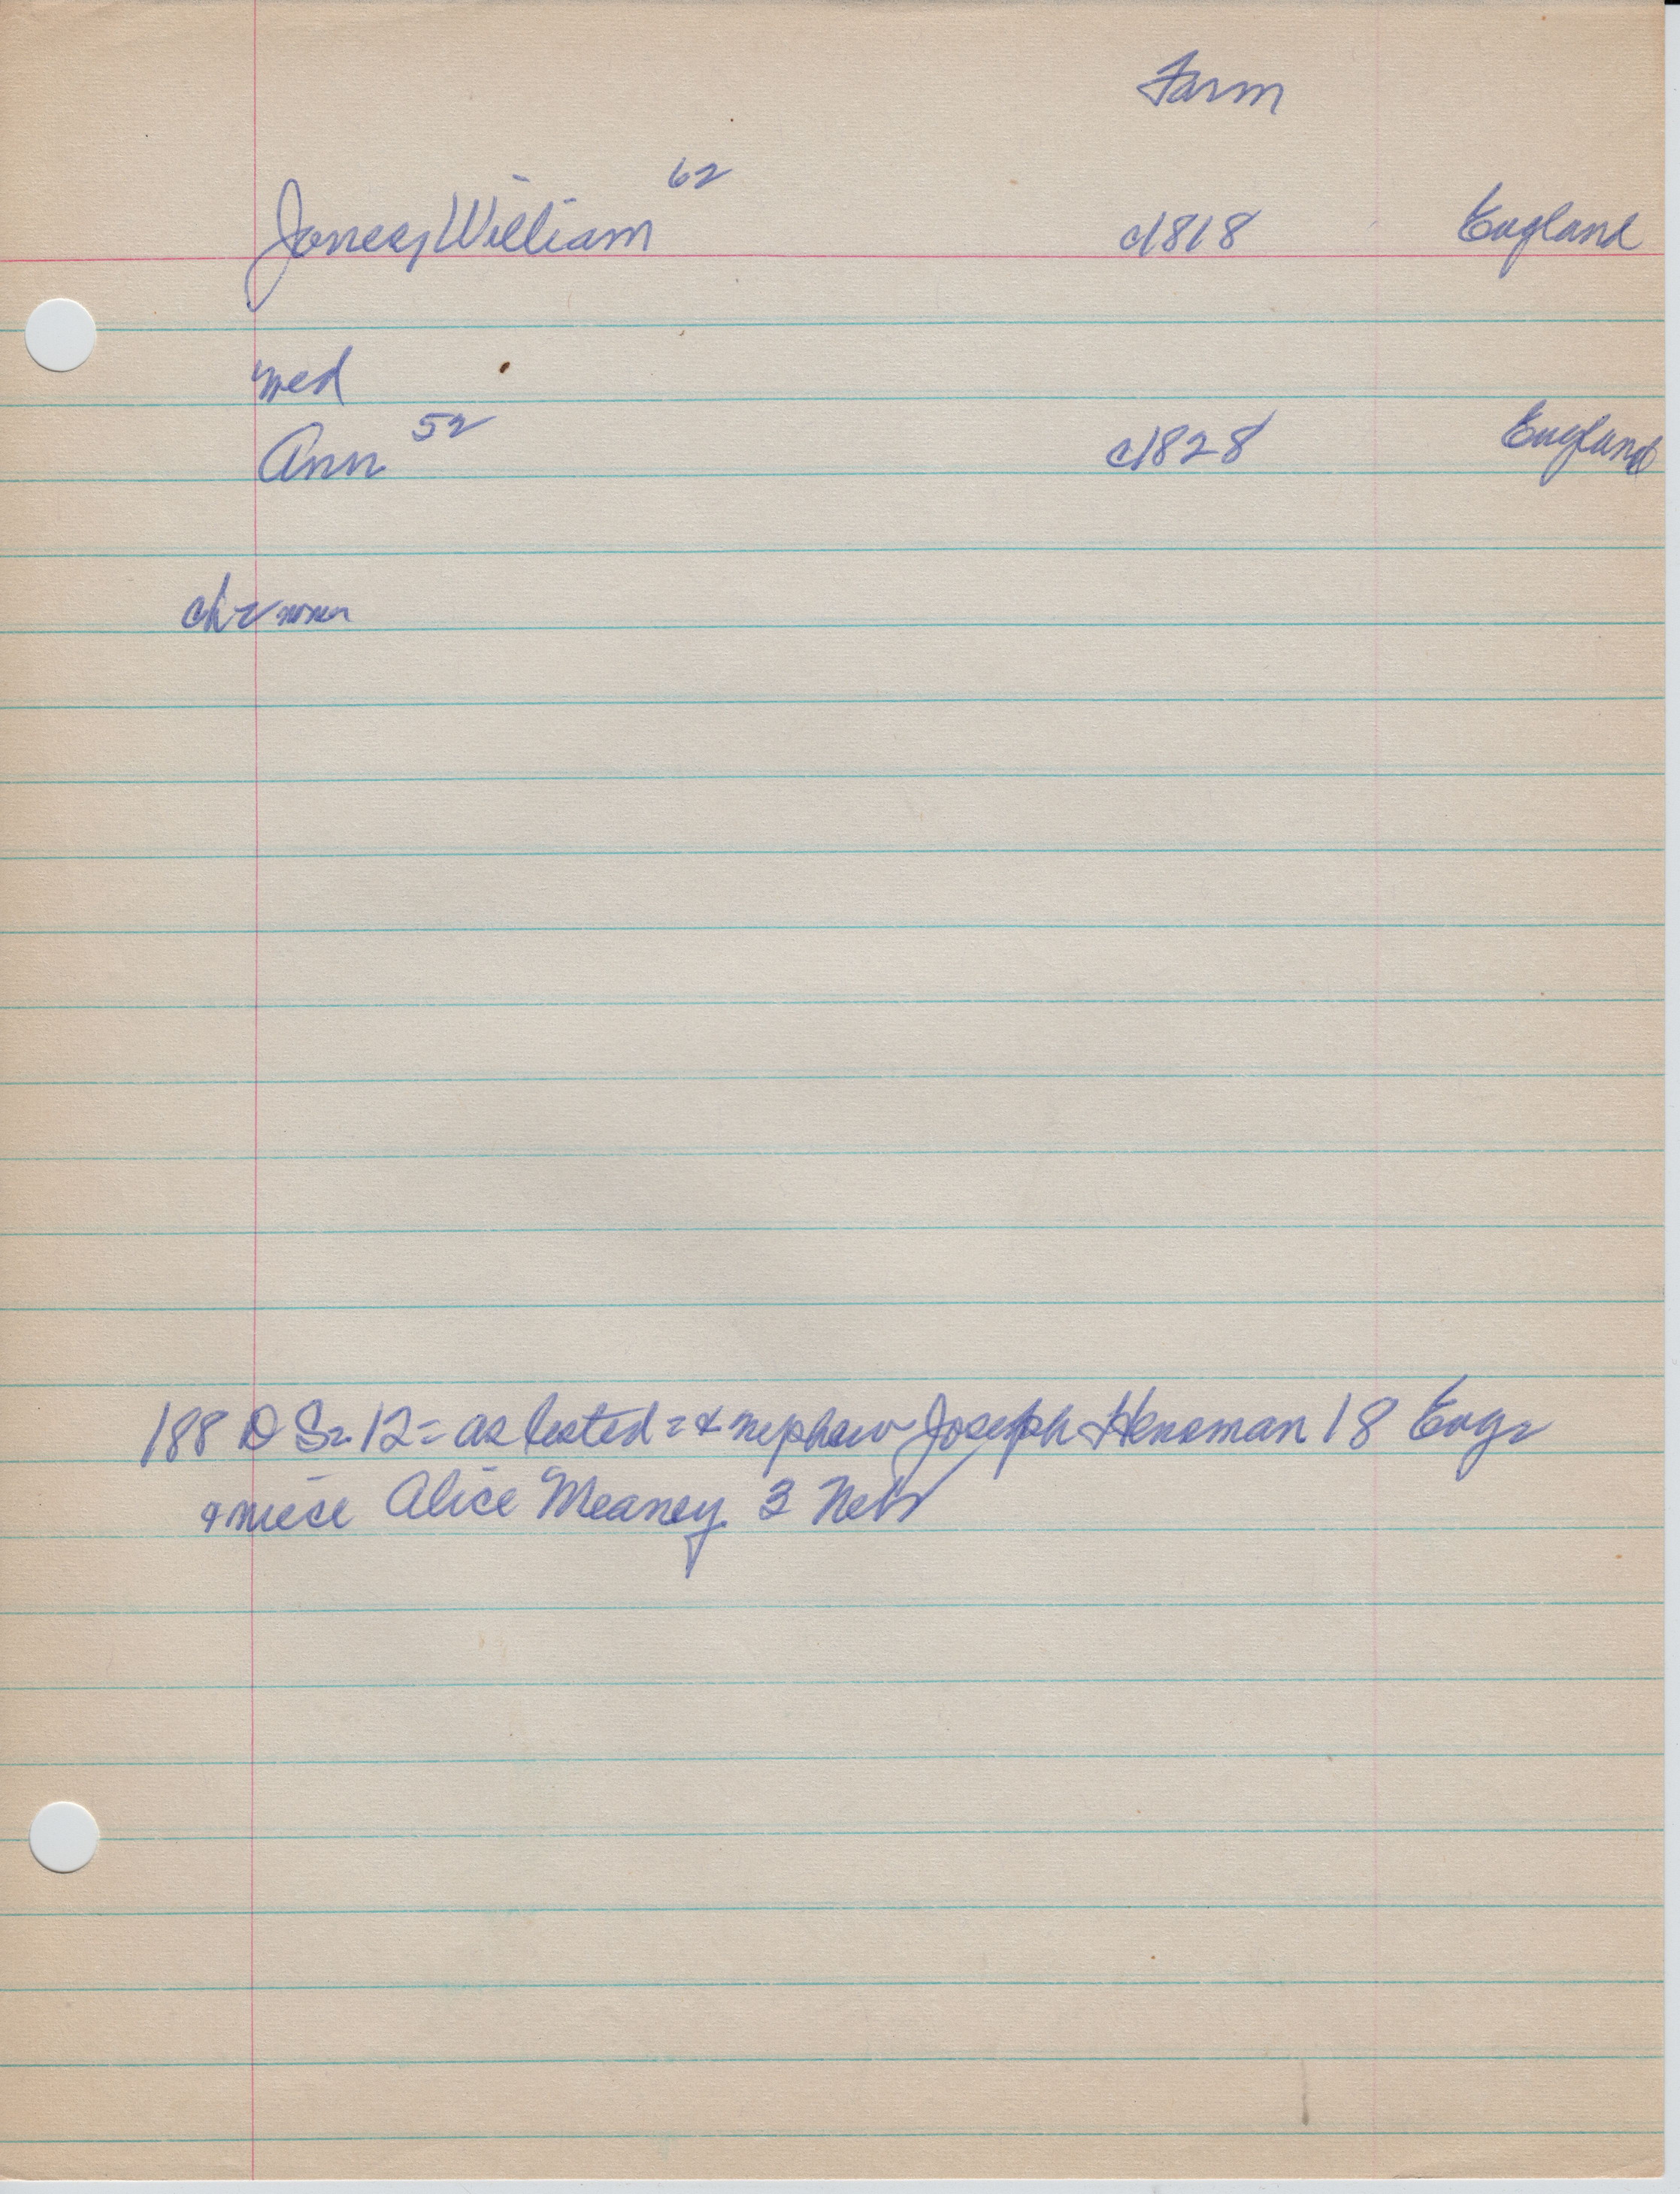 Farm
Jones, William 62 c1818 England
med
Ann 52 c1828 England
ch = none
1880 S. 12 = as listed = & nephew Joseph Hensman 18 Eng
& niece Alice Meaney 3 Neb